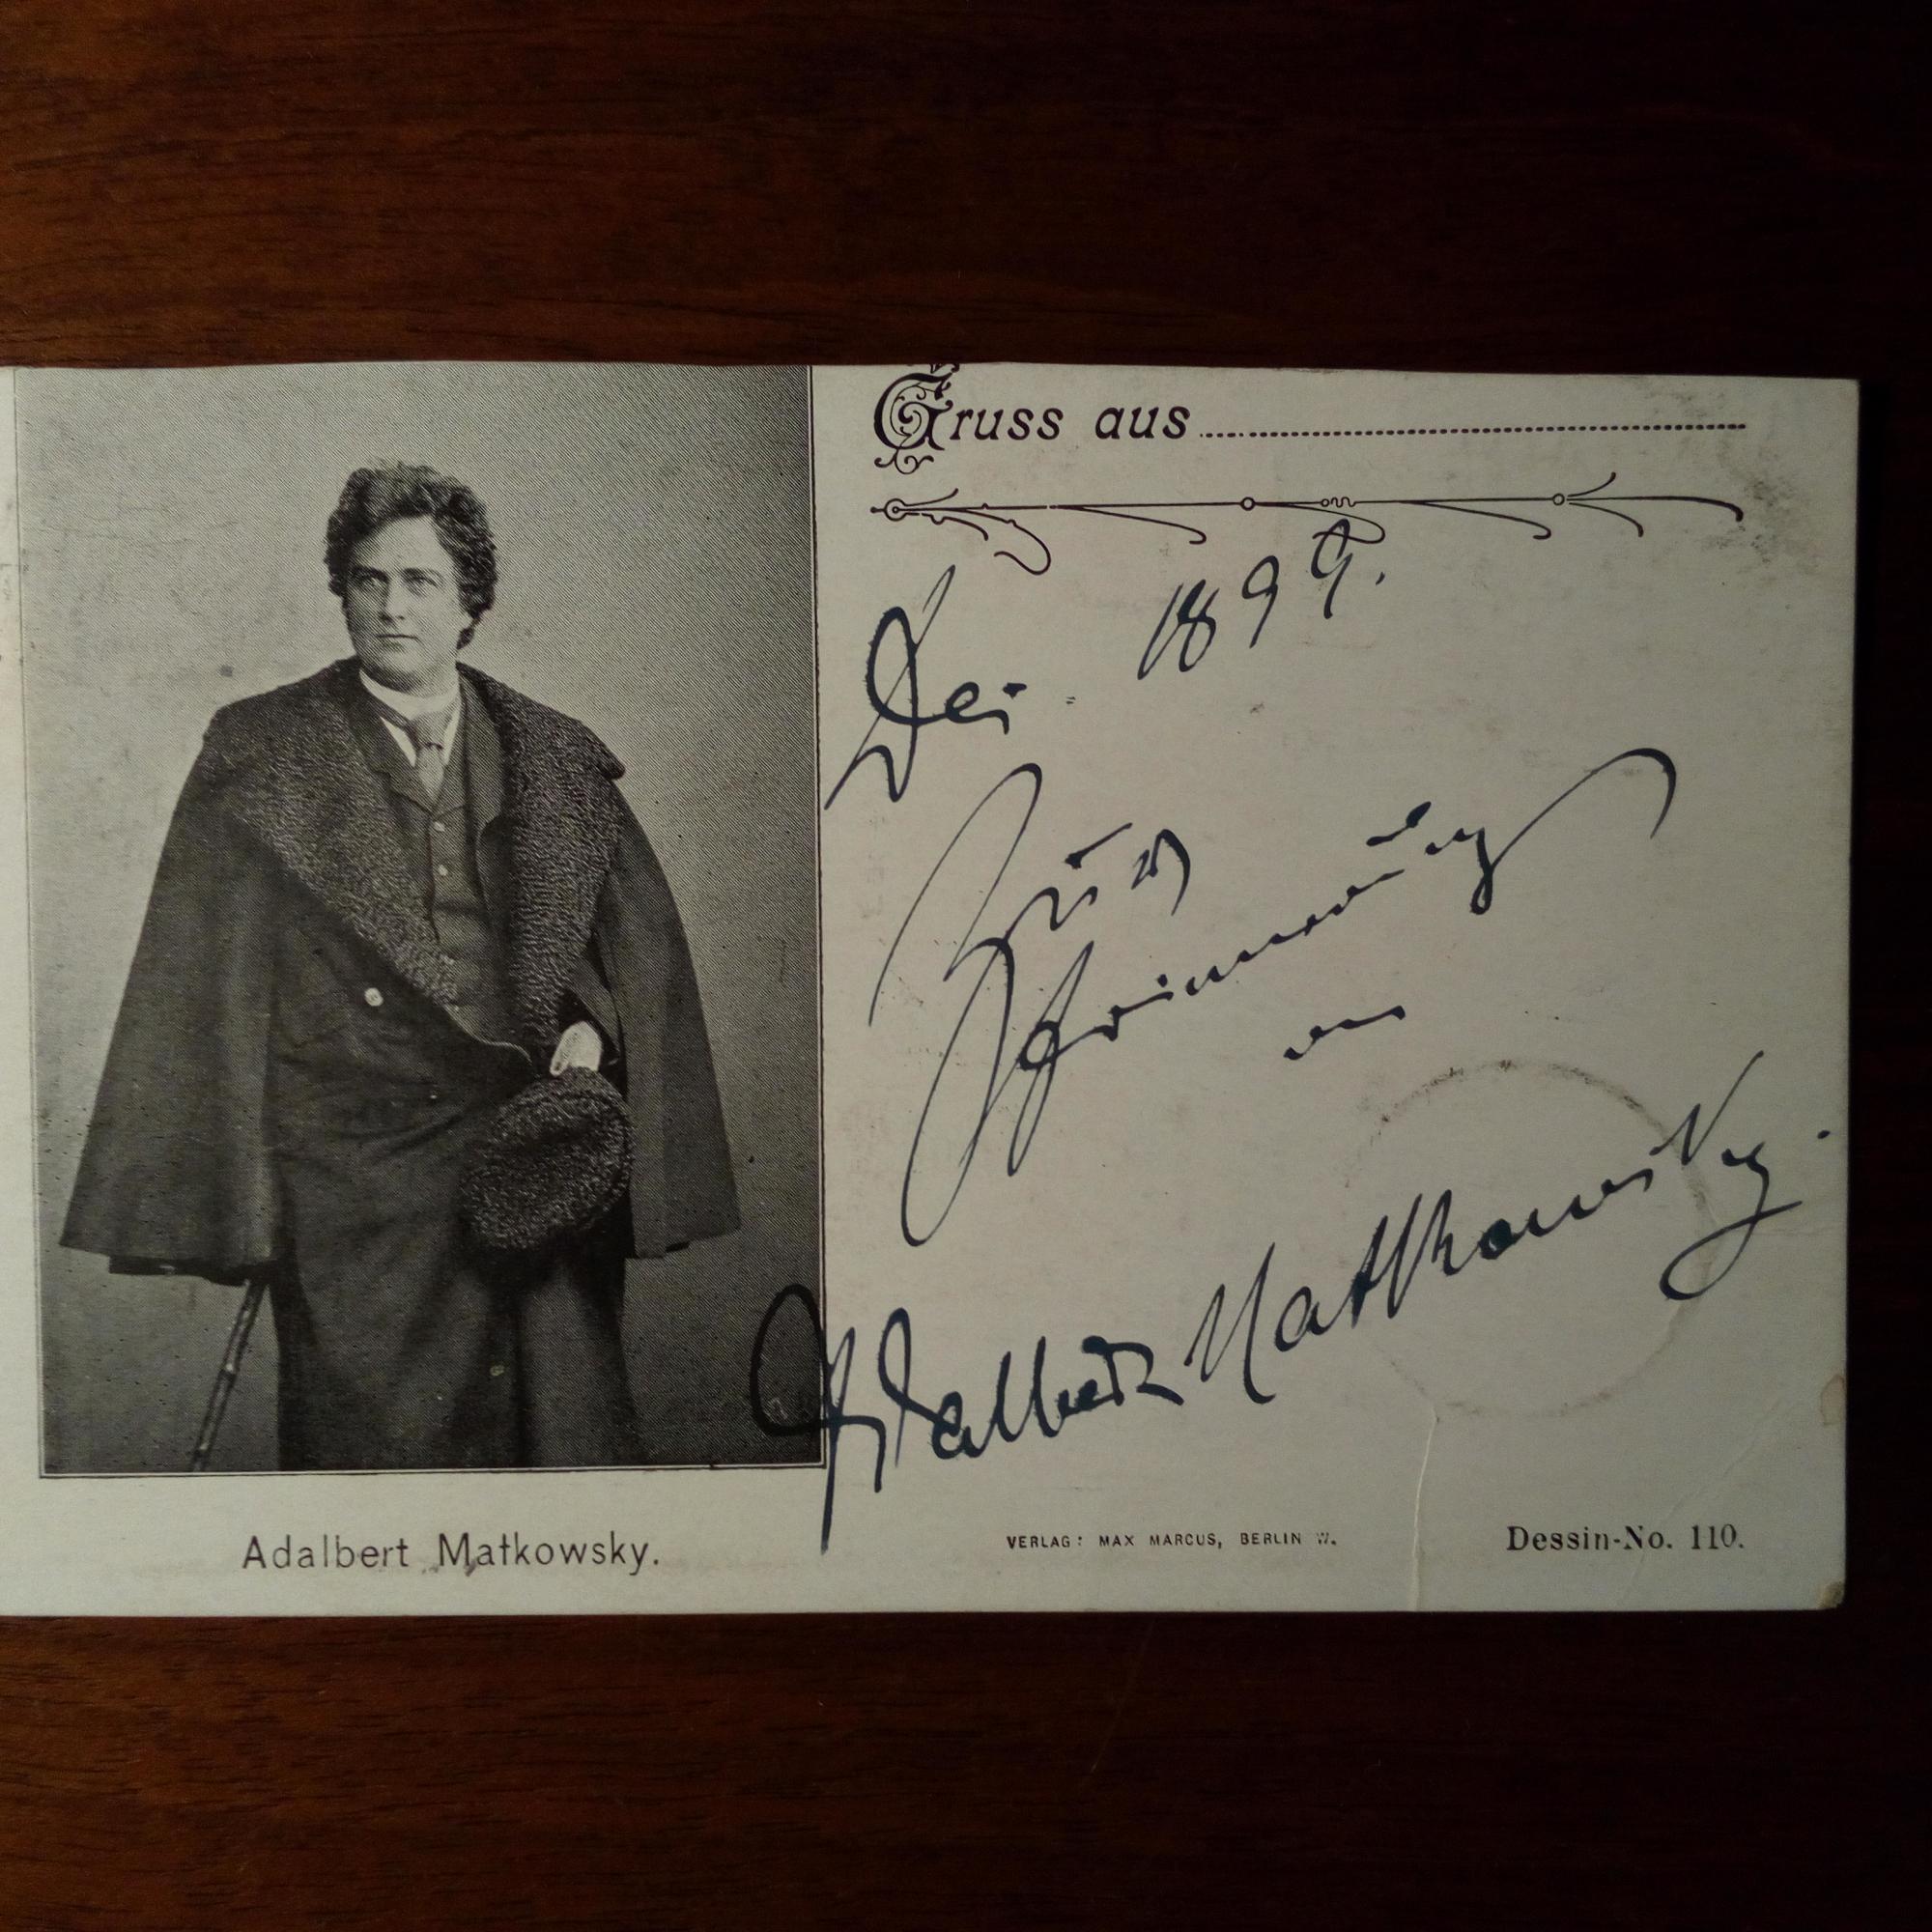 Gruss aus
1899.
Zur
Erinnerung
an
Adalbert Matkowsky.
Adalbert Matkowsky.
VERLAG: MAX MARCUS, BERLIN W.
Dessin-No. 110.